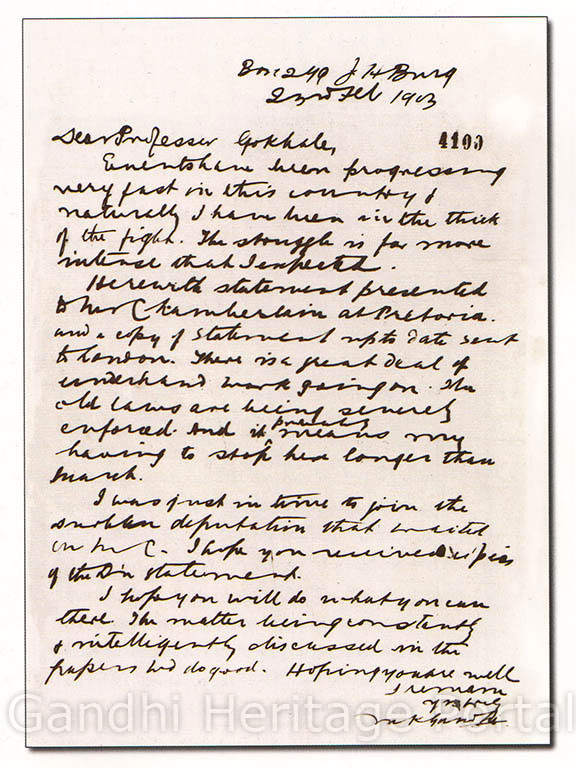 Box 299 J.H.Burg
23rd Feb 1903
Dear Professor Gokhale, 4100
Events have been progressing
very fast in this country &
naturally I have been in the thick
of the fight. The struggle is far more
intense that I expected.
Herewith statement presented
to Mr Chamberlain at Pretoria.
and a copy of statement up to date sent
to London. There is a great deal of
underhand work going on. The
old laws are being severely
enforced. And it probably means my
having to stop here longer than
March.
I was just in time to join the
Durban deputation that waited
on Mr C. I hope you received copies
of the Dn statement.
I hope you will do what you can
there. The matter being constantly
& intelligently discussed in the
papers wd do good. Hoping you are well
I remain
yours truly
M K Gandhi
Gandhi Heritage Portal